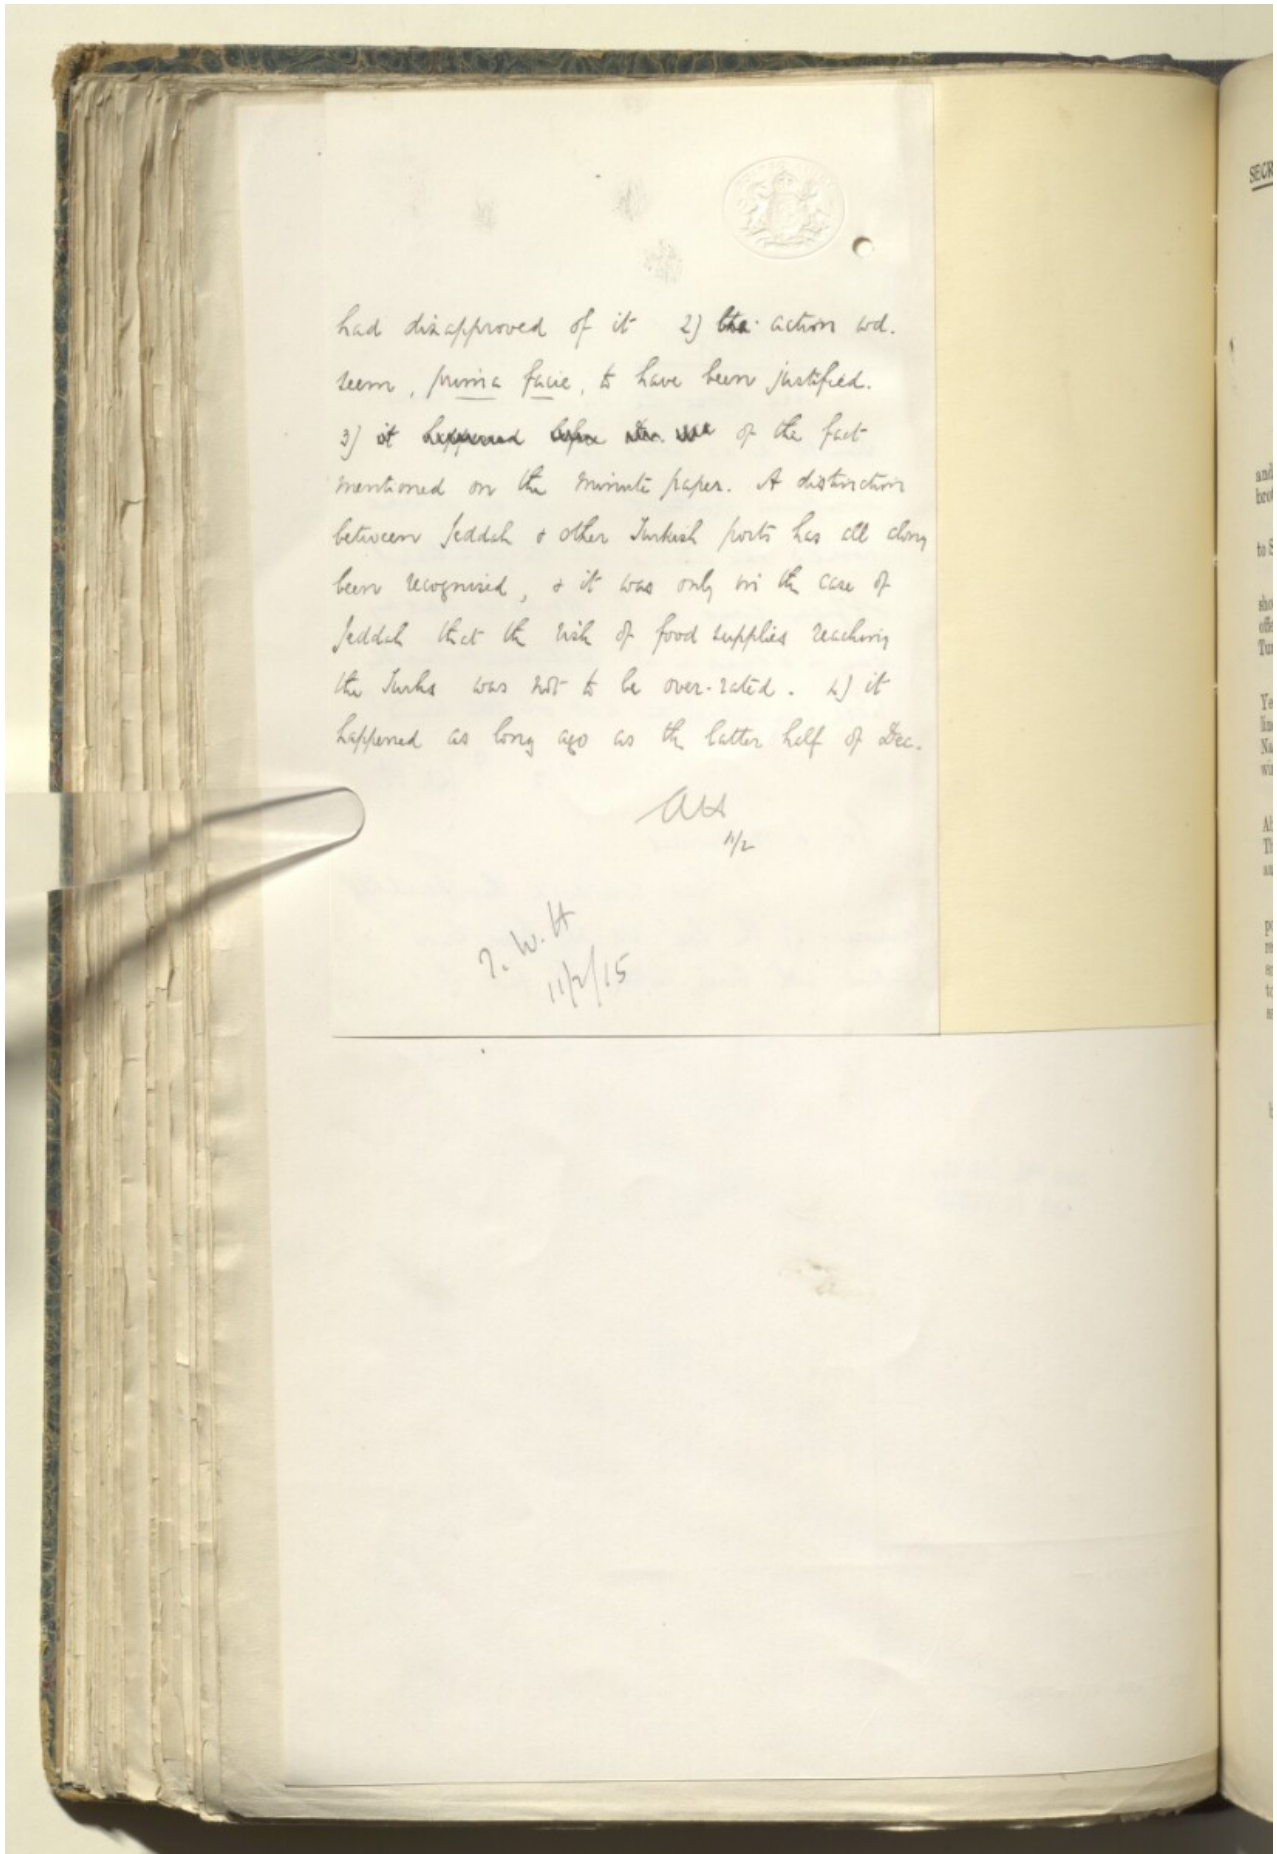 had disapproved of it 2) the action wd.
seem, prima facie, to have been justified.
3) it happened before Dec. of the fact
mentioned on the minute paper. A distinction
between Jeddah & other Turkish ports has all along
been recognised, & it was only in the case of
Jeddah that the risk of food supplies reaching
the Turks was not to be over-rated. 4) it
happened as long ago as the latter half of Dec.
AH
11/2
T.W.H
11/2/15
SECR
and
to S
Tur
Ye